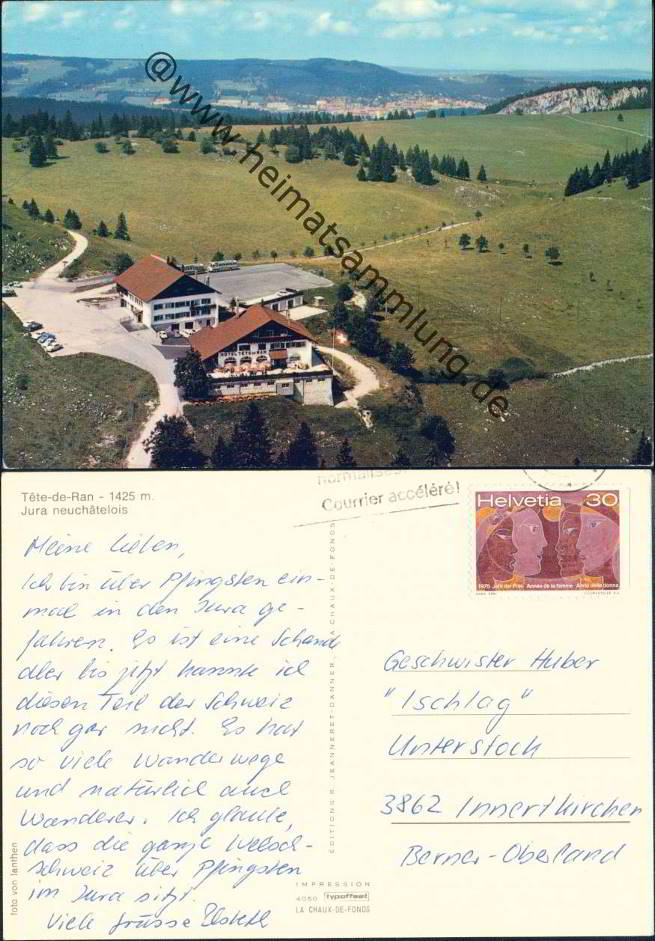 @www.heimatsammlung.de
HOTEL TÊTE-DE-RAN
Tête-de-Ran - 1425 m.
Jura neuchâtelois
Courrier accéléré!
Helvetia 30
1975 Jahr der Frau Année de la femme Anno della donna
Meine Lieben,
Ich bin über Pfingsten ein-
mal in den Jura ge-
fahren. Es ist eine Schand
aber bis jetzt kannte ich
diesen Teil der Schweiz
noch gar nicht. Es hat
so viele Wanderwege
und natürlich auch
Wanderer. Ich glaube,
dass die ganze Welsch-
schweiz über Pfingsten
im Jura sitzt.
Viele Grüsse
Geschwister Huber
"Ischlag"
Unterstock
3862 Innertkirchen
Berner-Oberland
EDITIONS R. JEANNERET-DANNER, LA CHAUX-DE-FONDS
foto von Ianthen
IMPRESSION
4050 typoffset
LA CHAUX-DE-FONDS